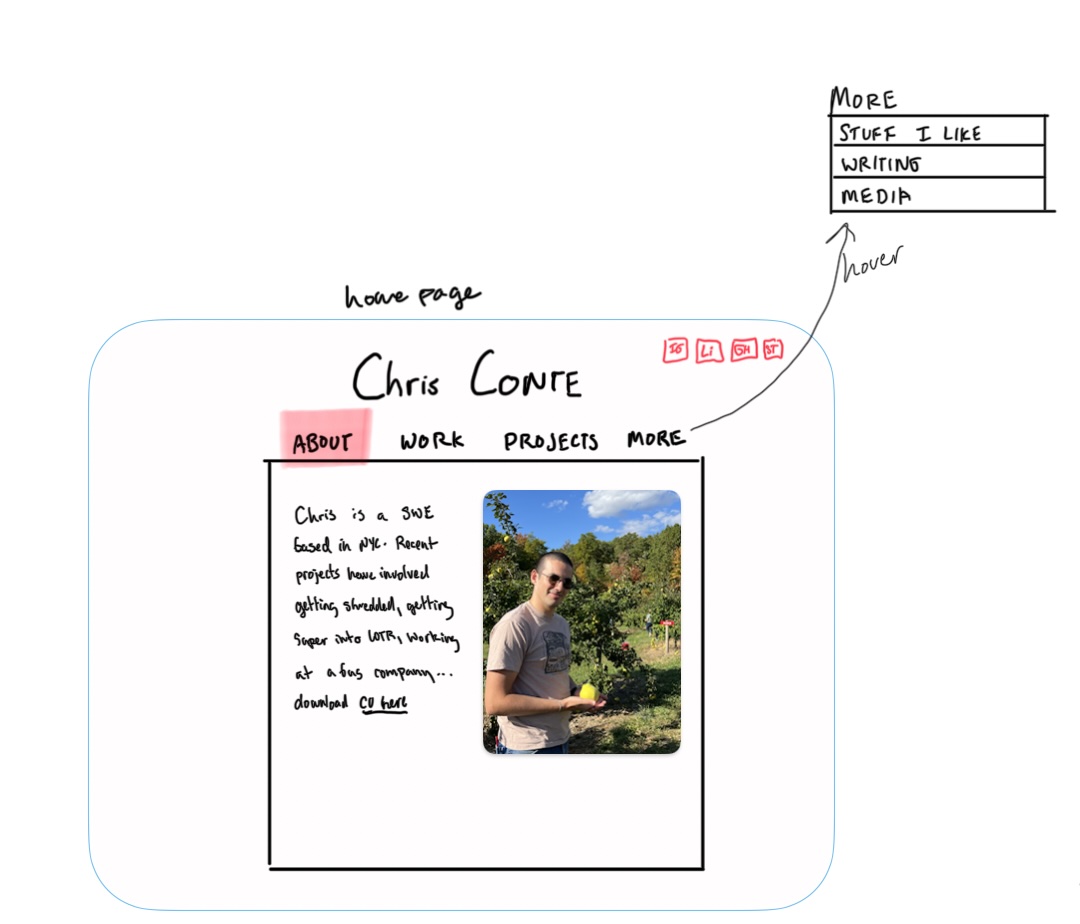 MORE
STUFF I LIKE
WRITING
MEDIA
hover
home page
IG Li GH ST
Chris CONTE
ABOUT WORK PROJECTS MORE
Chris is a SWE
based in NYC. Recent
projects have involved
getting shredded, getting
super into LOTR, working
at a bus company...
download CV here